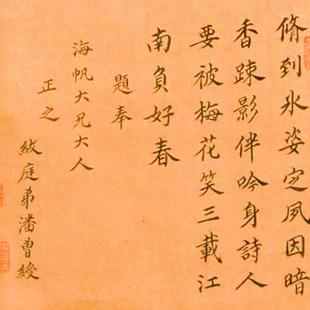 脩到氷姿定夙因暗
香踈影伴吟身詩人
要被梅花笑三載江
南負好春
題奉
海帆大兄大人
正之
紱庭弟潘曾綬